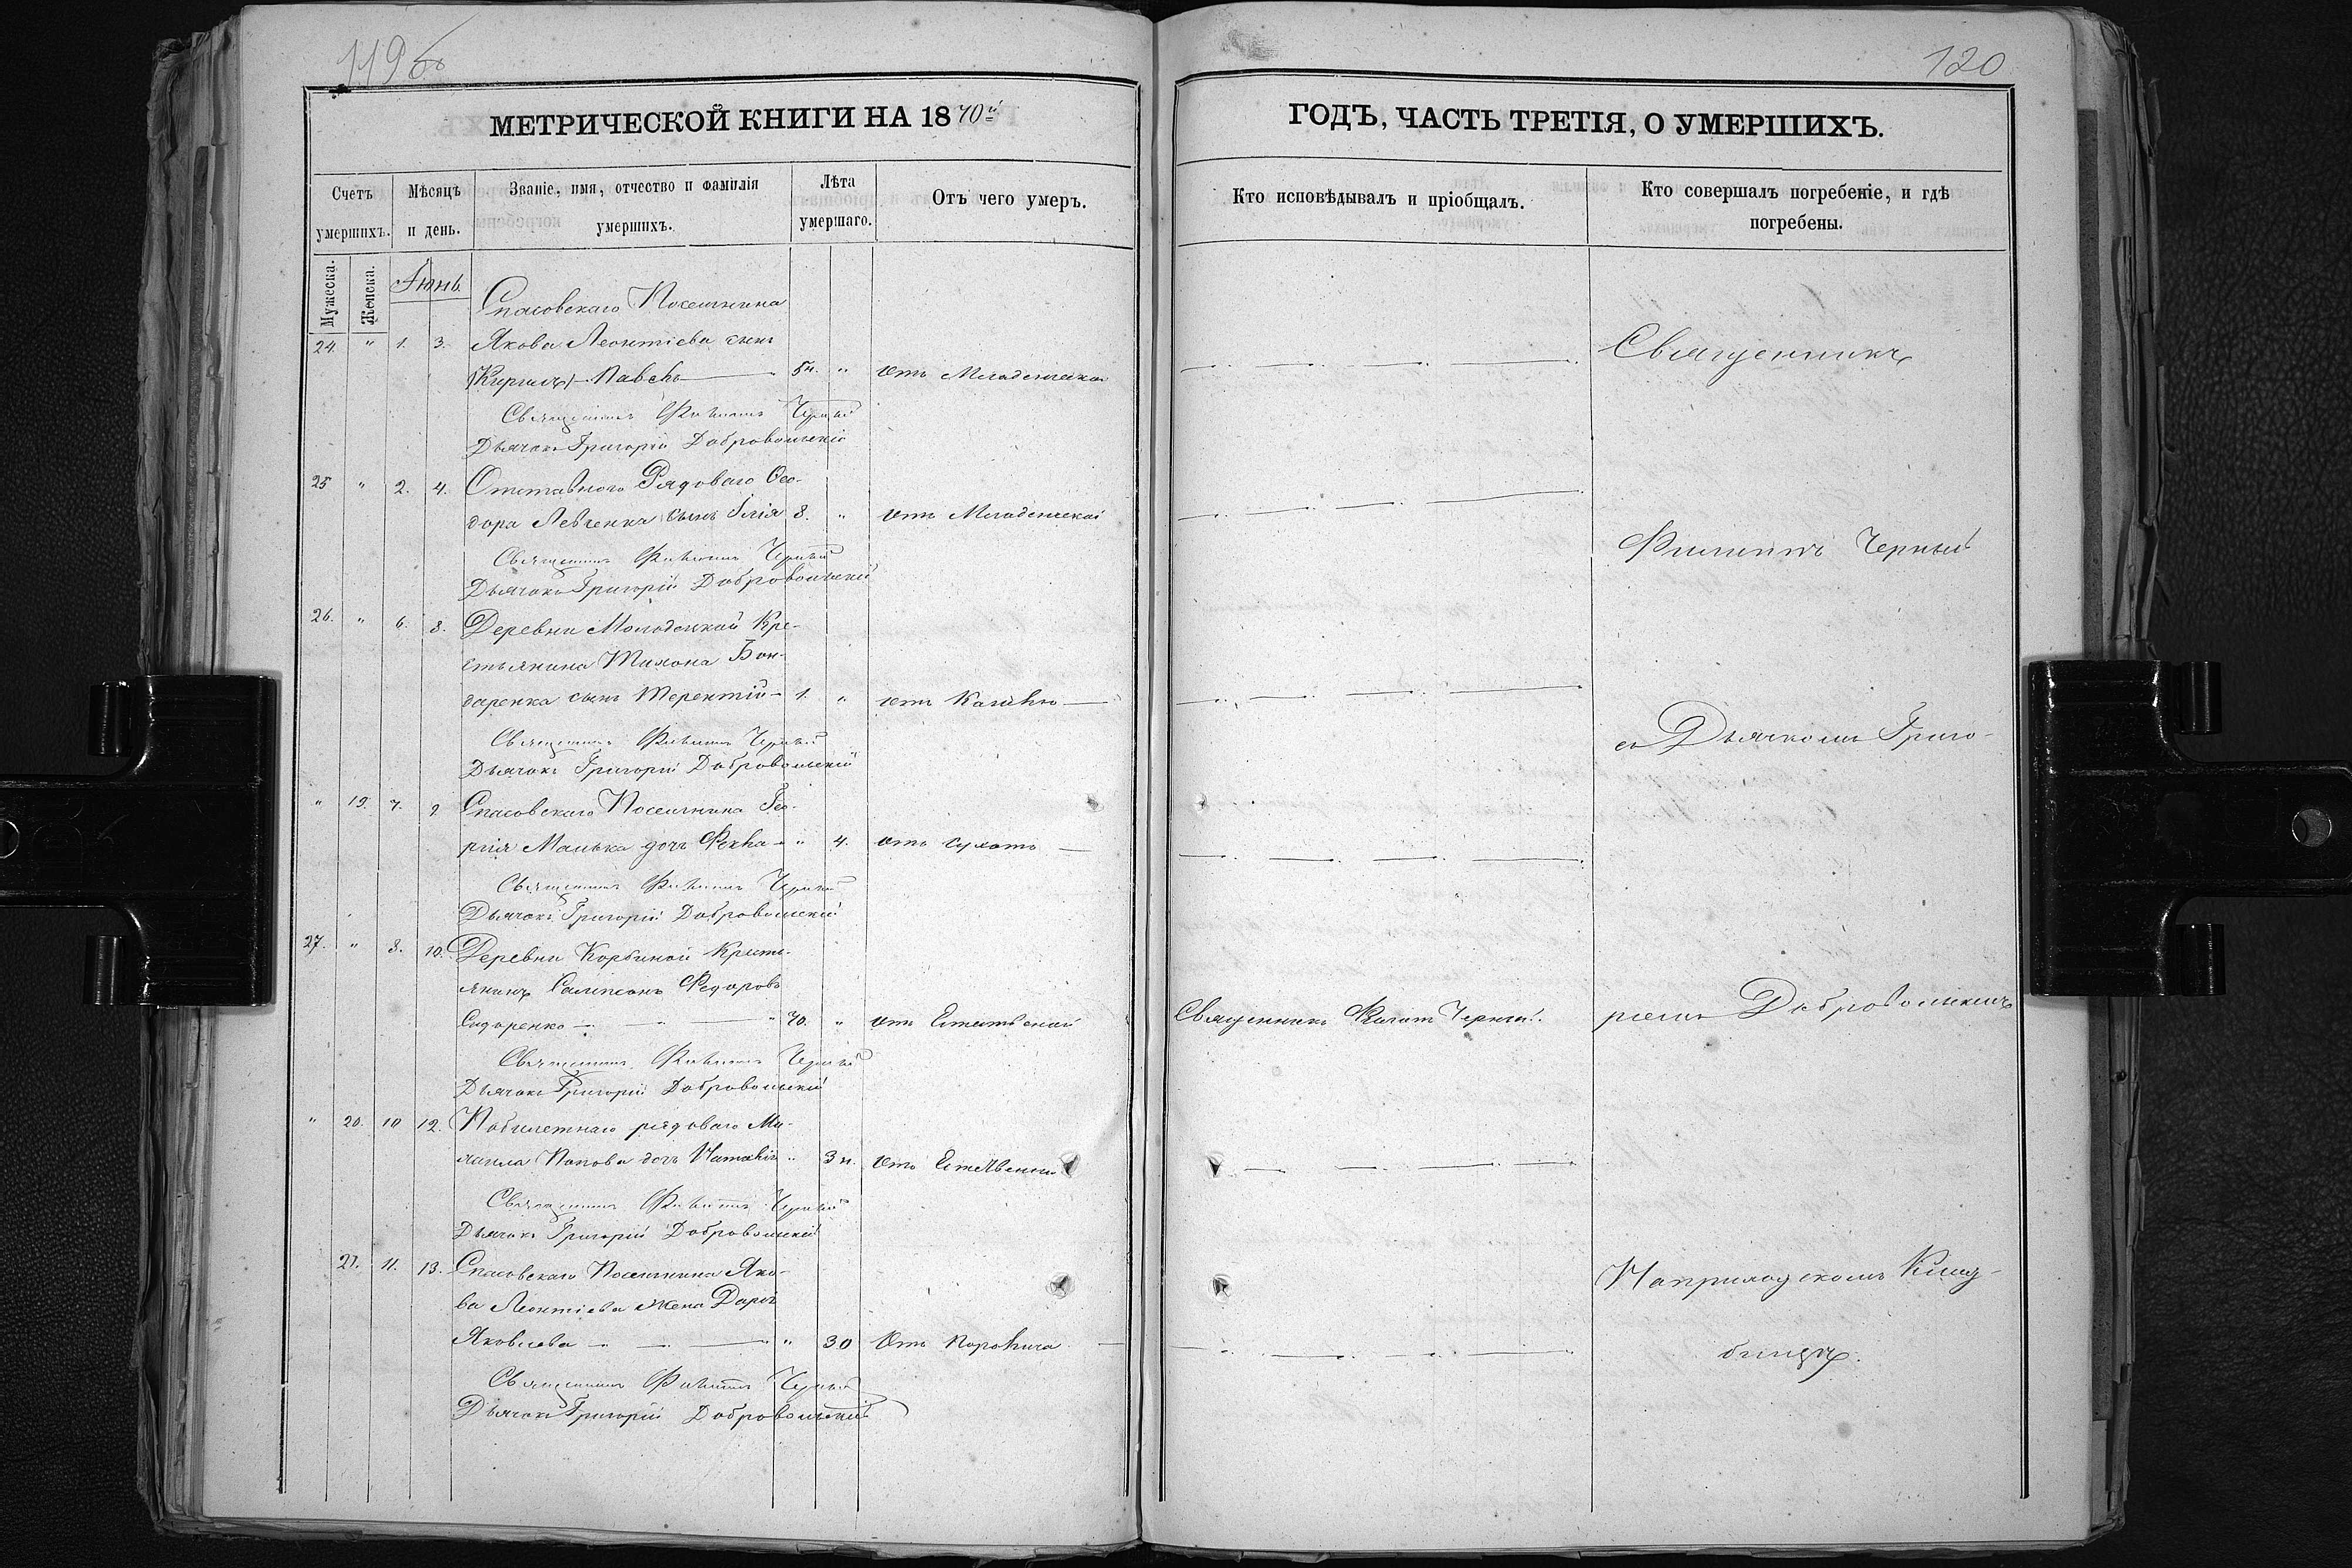 119 об
120
МЕТРИЧЕСКОЙ КНИГИ НА 1870й
ГОДЪ, ЧАСТЬ ТРЕТІЯ, О УМЕРШИХЪ.
Счетъ умершихъ.
Мѣсяцъ и день.
Званіе, имя, отчество и фамилія умершихъ.
Лѣта умершаго.
Отъ чего умеръ.
Кто исповѣдывалъ и пріобщалъ.
Кто совершалъ погребеніе, и гдѣ погребены.
Мужеска.
Женска.
Іюнь.
Спасовскаго Поселянина
24. " 1. 3. Якова Леонтіева сынъ
5н. " отъ Младенческой
Священникъ Филиппъ Черный
Дьячокъ Григорій Добровольскій
25 " 2. 4. Отставного Рядоваго Ѳео-
дора Левченка сынъ Илія 8. " отъ Младенческой
Священникъ Филиппъ Черный
Дьячокъ Григорій Добровольскій
26. " 6. 8. Деревни Молодецкой Кре-
стьянина Тихона Бон-
даренка сынъ Терентій 1. " отъ Кашлю
Священникъ Филиппъ Черный
Дьячокъ Григорій Добровольскій
" 19. 7. 9 Спасовскаго Поселянина Гео-
ргія Манька дочь Ѳекла " 4. отъ Сухотъ
Священникъ Филиппъ Черный
Дьячокъ Григорій Добровольскій
27. " 8. 10. Деревни Корбиной Кресть-
янинъ Сампсонъ Федоровъ
Сидоренко " 70. " отъ
Священникъ Филиппъ Черный
Дьячокъ Григорій Добровольскій
" 20. 10 12. рядоваго Ми-
хаила Попова дочь Наталія " 3н. отъ
Священникъ Филиппъ Черный
Дьячокъ Григорій Добровольскій
21. 11. 13. Спасовскаго Поселянина Яко-
ва Леонтіева жена Дарія
Яковлева " 30 отъ
Священникъ Филиппъ Черный
Дьячокъ Григорій Добровольскій
Священникъ Филиппъ Черный.
Священникъ
Филиппъ Черный
съ Дьячкомъ Григо-
ріемъ Добровольскимъ
На приходскомъ Клад-
бищѣ.